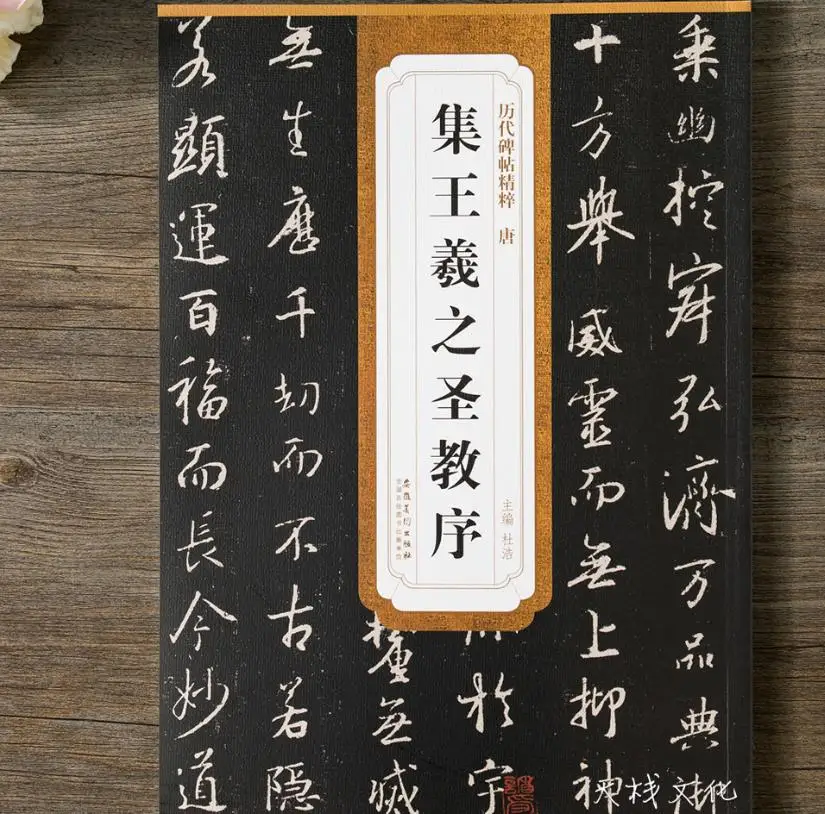 乘幽控寂弘濟万品典
十方舉威靈而無上抑神
历代碑帖精粹 唐
集王羲之圣教序
主编 杜浩
安徽美术出版社
全国百佳图书出版单位
於宇
無滅
無生歷千劫而不古若隱
若顯運百福而長今妙道
栈 文化